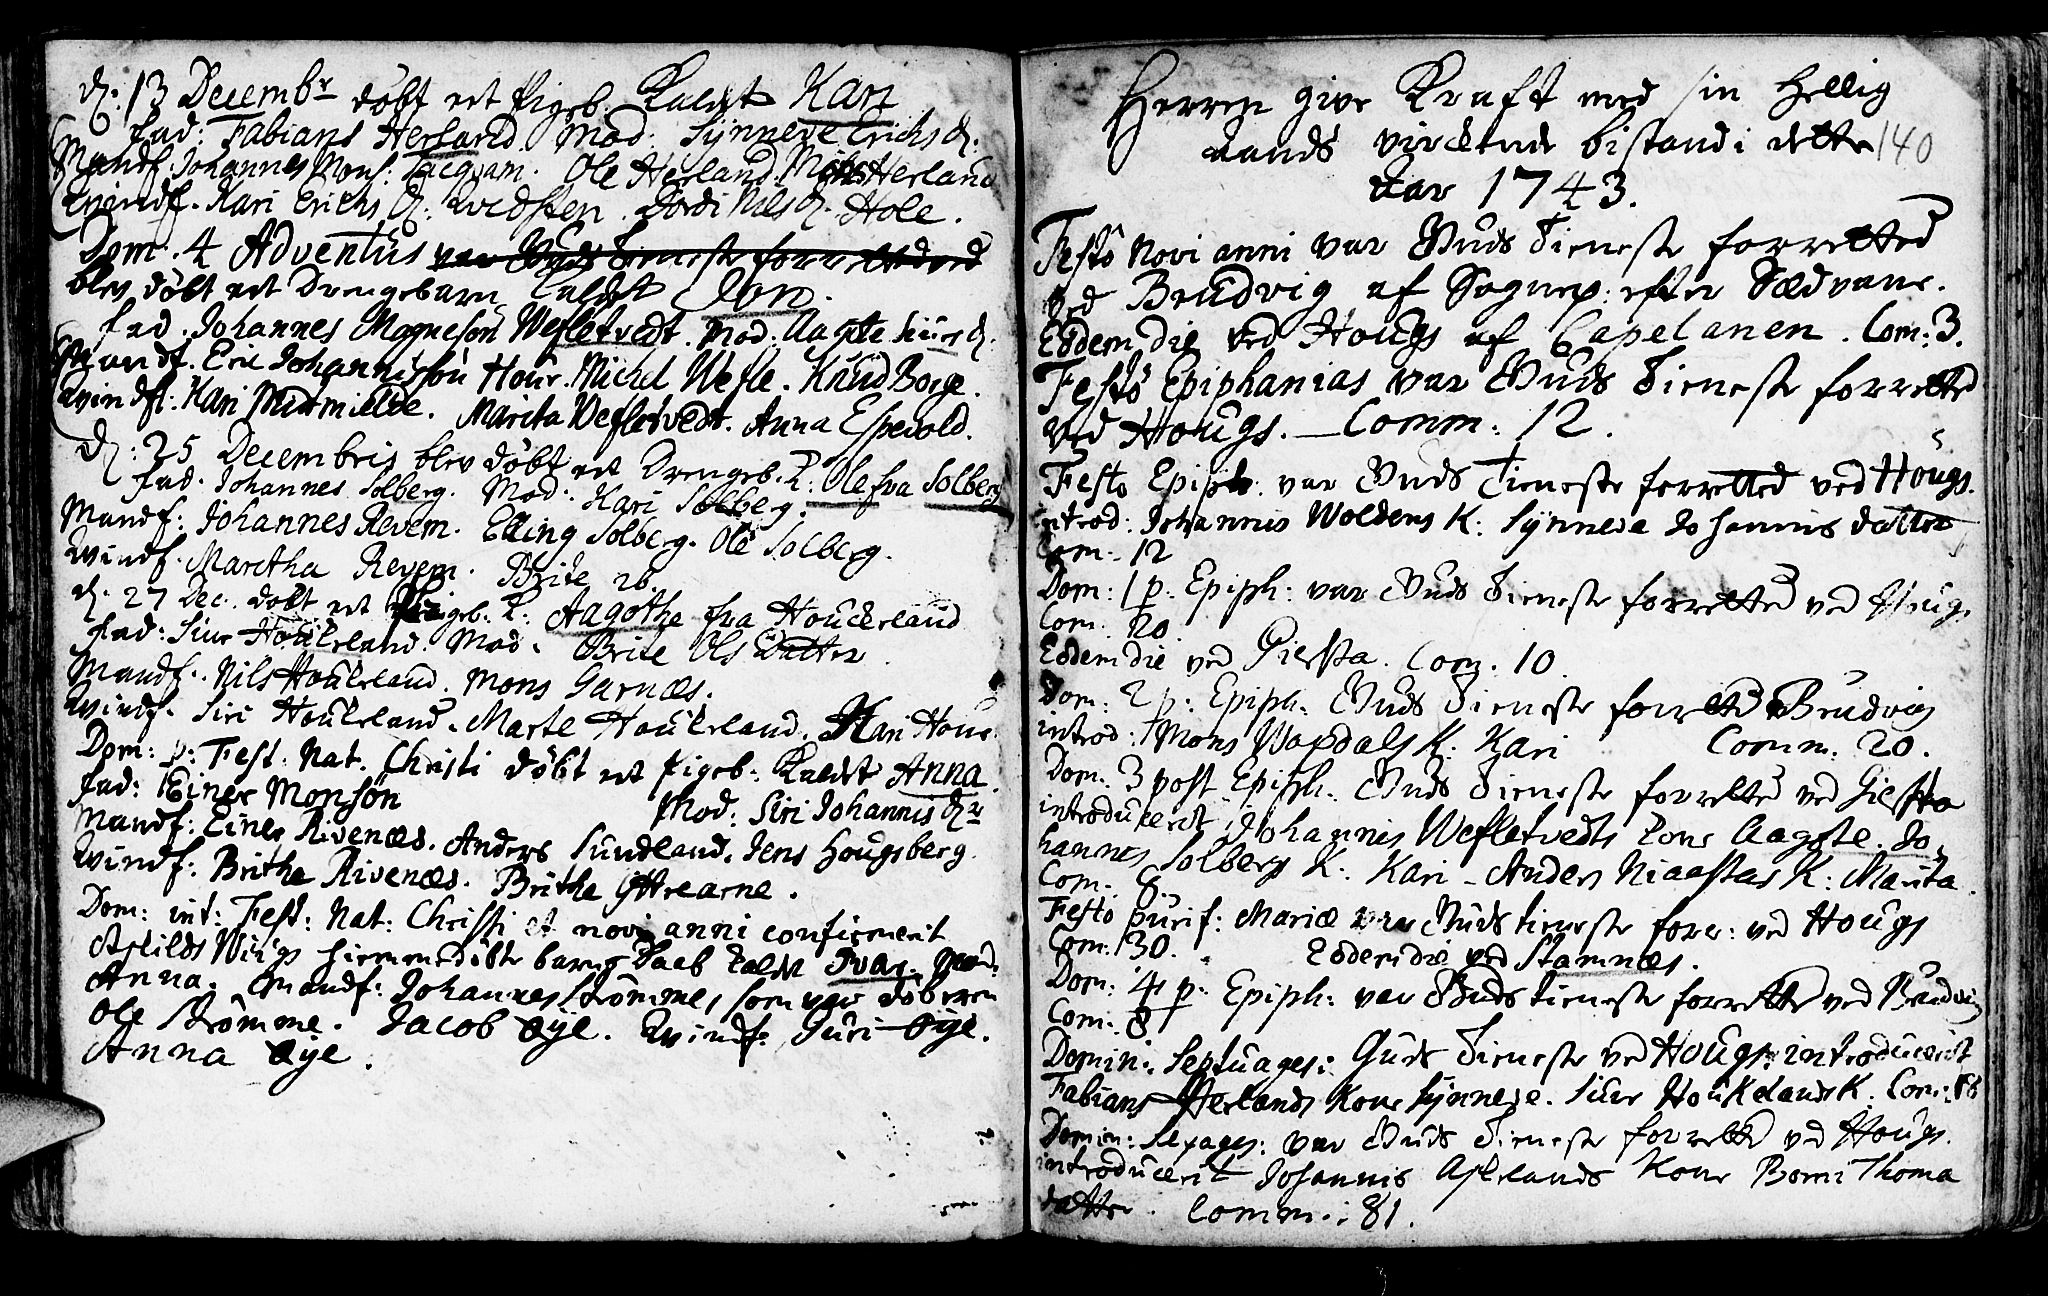 d: 13 Decembr döbt et Pigeb. Kaldet Kari
fad: Fabians Herland. Mod: Synneve Erichs d:
Mandf. Johannes Mons: Tacqvam. Ole Herland. Mons Herland
Qvindf. Kari Erichs d: Qvidsten. Jordi Nils d. Hole.
Dom: 4 Adventus var Guds Tieneste forretted ved
blev döbt et Drengebarn Kaldet Jon.
fad. Johannes Mogneson Wefletvedt. Mod: Aagte Siurs d.
Mandf. Eric Johannisson Hour. Michel Wefle. Knud Borge.
Qvindf: Kari Midmielde. Marita Wefletvedt. Anna Espevold.
d: 25 Decembris blev döbt et Drengeb. K: Ole fra Solberg
fad. Johannes Solberg. Mod: Kari Solberg.
Mandf: Johannes Revem. Elling Solberg. Ole Solberg.
Qvindf. Maretha Revem. Brite ib.
d. 27 Dec. döbt et Pigeb. K: Aagothe fra Houckeland
fad: Siur Houkeland. Mod. Brite Ols Datter.
Mandf. Nils Houkeland. Mons Garnæs.
Qvindf. Siri Houkeland. Marte Houkeland. Kari Hour.
Dom: p: Fest. Nat. Christi döbt et Pigeb: Kaldet Anna.
fad: Einer Monsön Mod: Siri Johannis dr
Mandf: Einer Rivenæs. Anders Sundland. Jens Hougsberg.
Qvindf: Brithe Rivenæs. Brithe Yttrearne.
Dom: int: Fest: Nat: Christi et novi anni confirmerit
Askilds Wiigs hiemmedöbte barns Daab Kaldet Ivar. Mod:
Anna. Mandf: Johannes Strömme, som var döberen
Ole Strömme. Jacob Øye. Qvindf: Guri Øye.
Anna Øye.
Herren give Kraft med sin Hellig
aands virckende bistand i dette 140
Aar 1743.
Festo Novi anni var Guds Tieneste forretted
ved Brudvig af Sognep: efter Sædvane.
Eodem die ved Hougs af Capelanen. Com: 3.
Festo Epiphanias var Guds Tieneste forretted
ved Hougs. Comm: 12.
Festo Epiph. var Guds Tieneste forretted ved Hougs.
introd: Johannis Woldens K: Synneve Johannis datter
Com: 12
Dom: 1 p. Epiph: var Guds Tieneste forretted ved Houg.
Com. 20.
Eodem die ved Giersta. Com. 10.
Dom: 2 p: Epiph. Guds Tieneste forretted Brudvig
introd: Mons Waxdals K: Kari Comm: 20.
Dom. 3 post Epiph. Guds Tieneste forretted ved Giersta
introducerit Johannis Wefletvedts Kone Aagote. Jo-
hannes Solbergs K. Kari - Anders Niaastas K: Marita.
Com. 8.
Festo purif: Mariæ var Guds tieneste forr: ved Hougs
Com. 30. Eodem die ved Stamnæs.
Dom: 4 p: Epiph: var Guds tieneste forretted ved Brudvig
Com. 8
Domini. Septuages: Guds Tieneste ved Hougs: introducerit
Fabians Herlands Kone Synneve. Siur Houkelands K. Com: 18
Domin: Sexages: var Guds Tieneste forretted ved Hougs.
introducerit Johannis Askelands Kone Borni Thoma
datter. Comm:: 81.